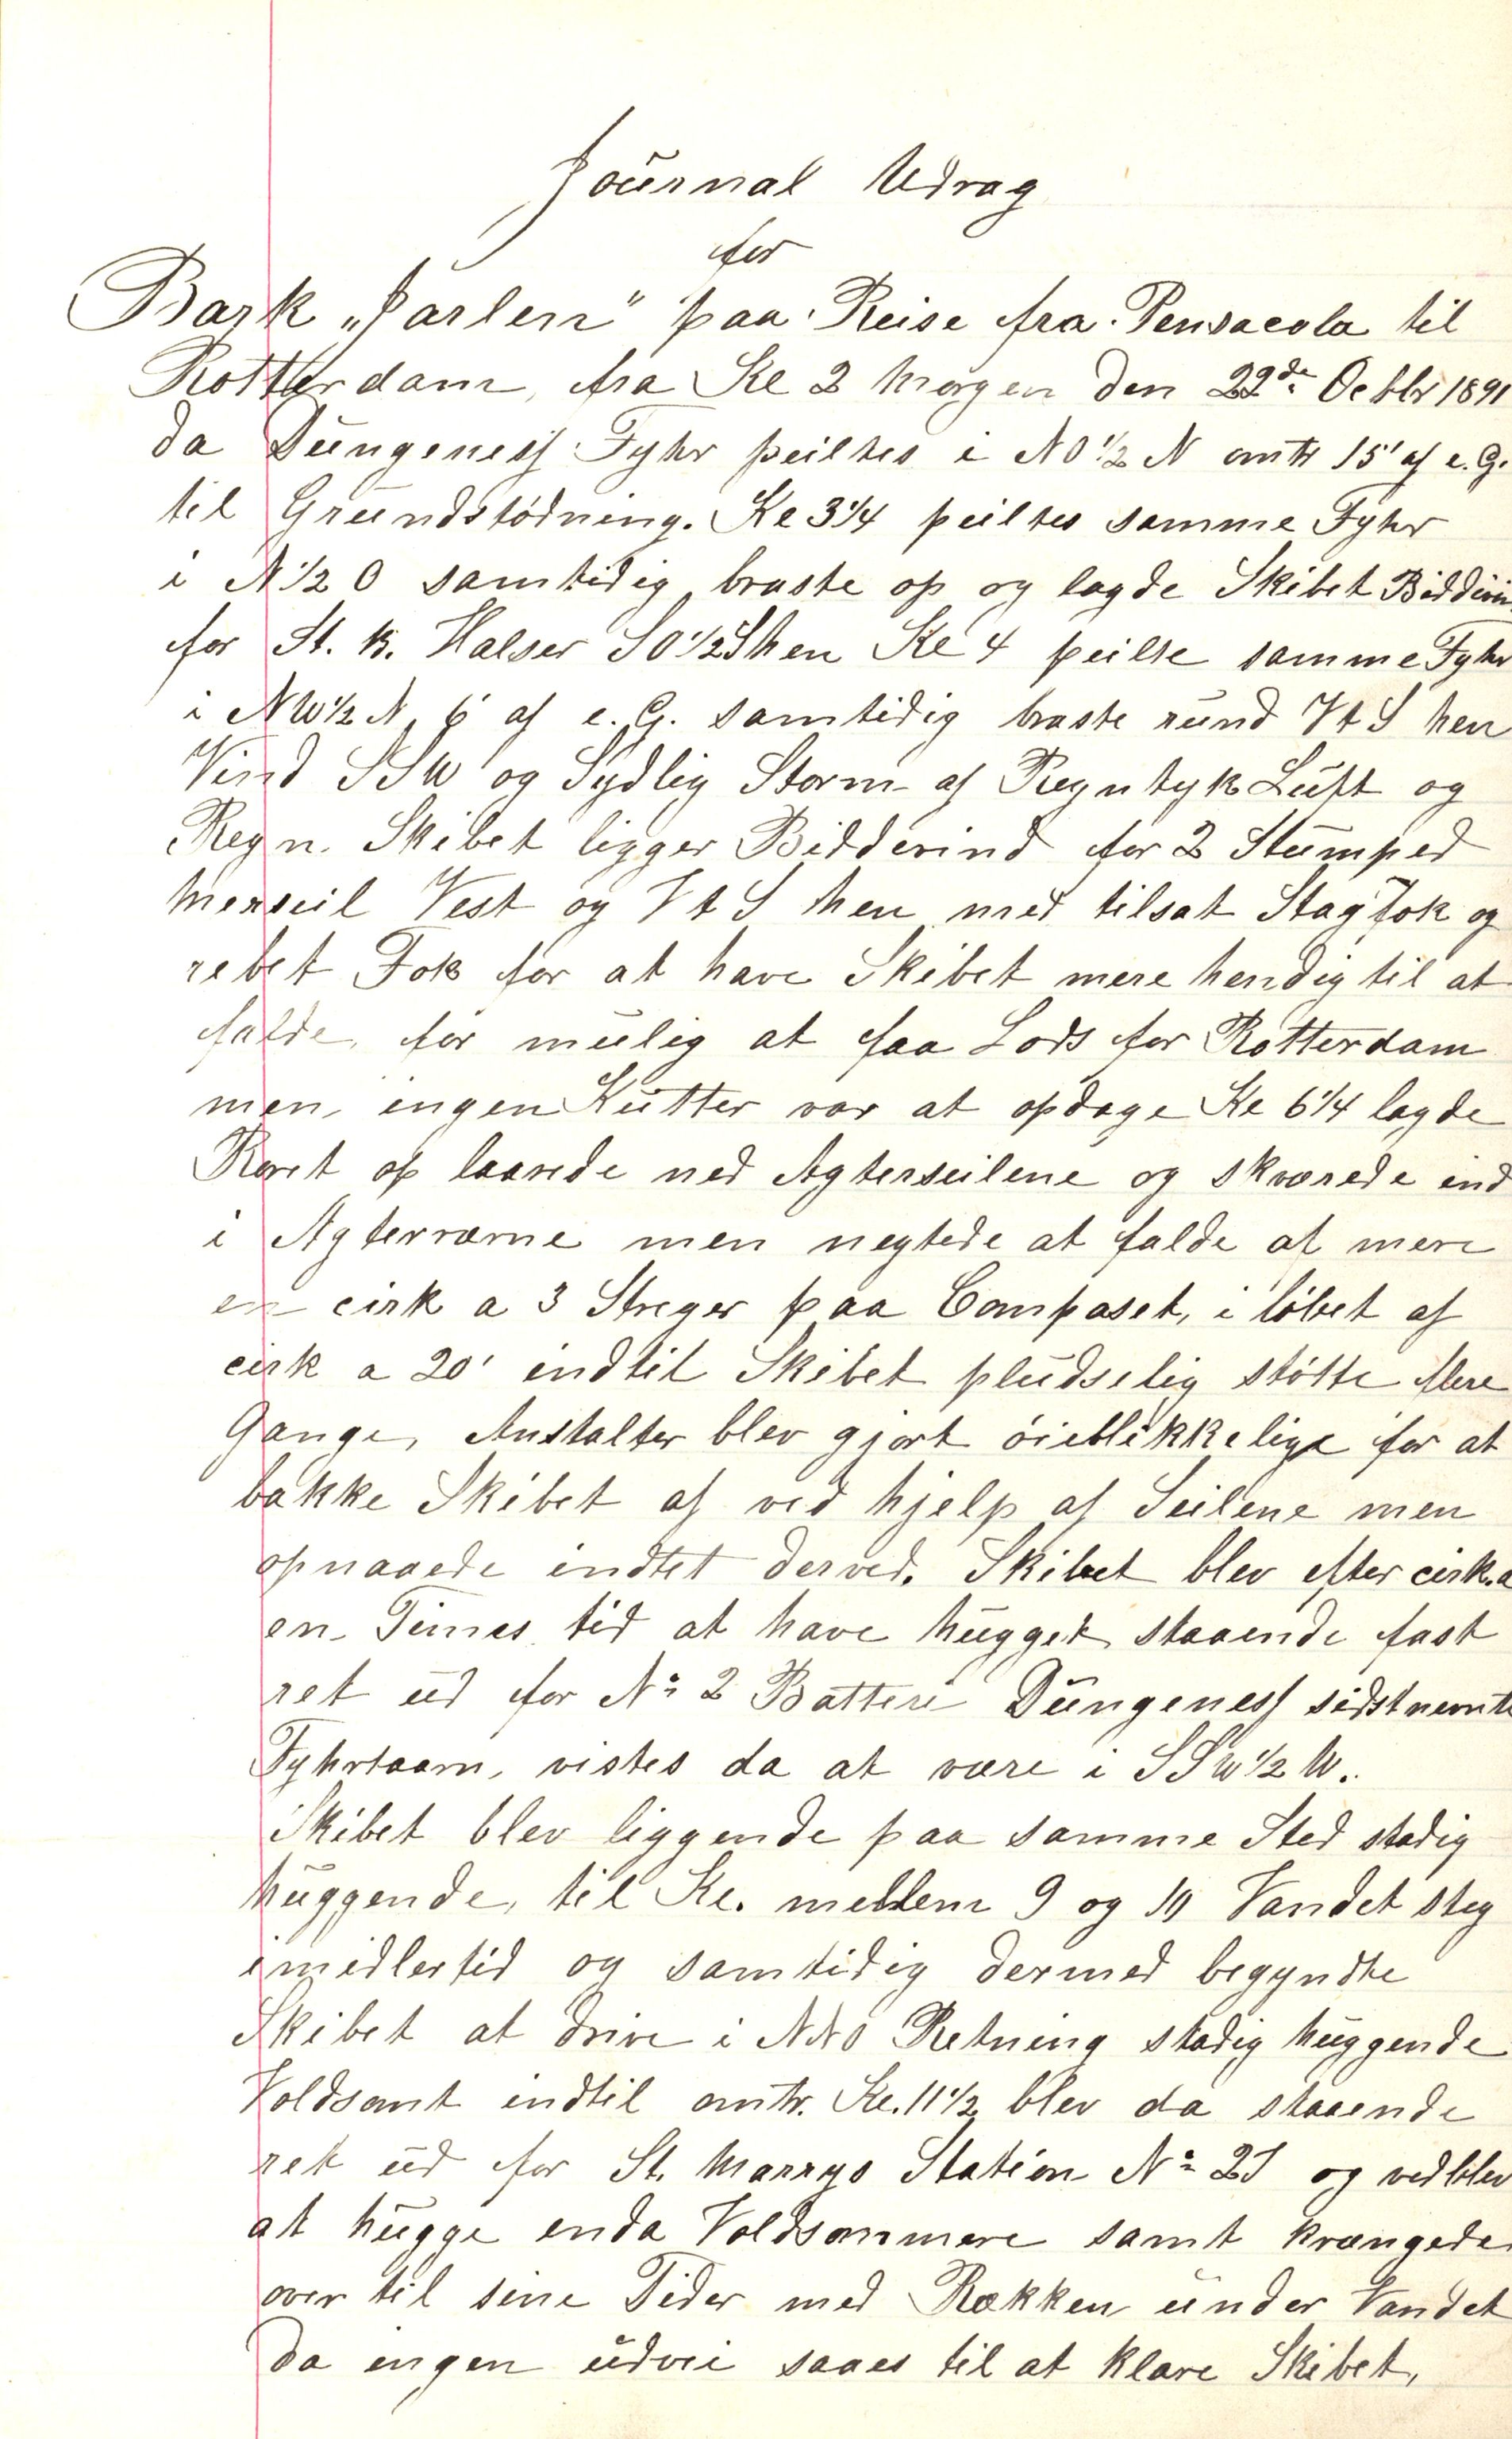 Journal Udrag
for
Bark "Jarlen" paa Reise fra Pensacola til
Rotterdam, fra Kl 2 Morgen den 22de Octbr 1891
da Dungeness Fyhr peiltes i NO 1/2 N omtr 15' af e. G.
til Grundstödning. Kl 3 1/4 peiltes samme Fyhr
i N 1/2 O samtidig braste op og lagde Skibet Biddevin
for St. B. Halser SO 1/2 S hen Kl 4 peilte samme Fyhr
i NW 1/2 N, 6' af e. G. samtidig braste rund V t S hen
Vind SSW og Sydlig Storm af Regntyk Luft og
Regn. Skibet ligger Biddevind for 2 Stumped
Merseil Vest og V t S hen med tilsat Stagfok og
rebet Fok for at have Skibet mere hendig til at
falde, for mulig at faa Lods for Rotterdam
men ingen Kutter var at opdage Kl 6 1/4 lagde
Roret op laarede ned Agterseilene og skværede ind
i Agterræerne men negtede at falde af mere
en cirk a 3 Streger paa Compaset, i löbet af
cirk a 20' indtil Skibet pludselig stötte flere
Gange, Anstalter blev gjort öieblikkelige for at
bakke Skibet af ved hjelp af Seilene men
opnaaede indtet derved. Skibet blev efter cirk. a
en Times tid at have hugget staaende fast
ret ud for No 2 Batteri Dungeness sidstnevnte
Fyhrtaarn, vistes da at være i SSW 1/2 W.
Skibet blev liggende paa samme Sted stadig
huggende, til Kl. mellem 9 og 10 Vandet steg
imidlertid og samtidig dermed begyndte
Skibet at drive i NNO Retning stadig huggende
Voldsomt indtil omtr. Kl. 11 1/2 blev da staaende
ret ud for St. Marrys Station No 27 og vedblev
at hugge enda Voldsommere samt krængede
over til sine Tider med Rækken under Vandet
da ingen udvei saaes til at klare Skibet,